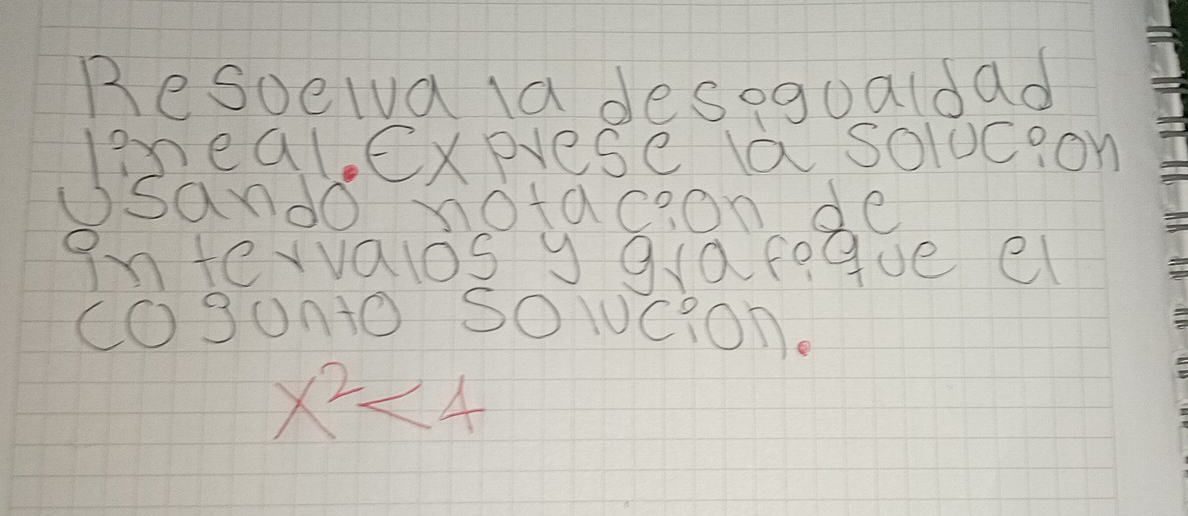 Resoelva la desigoaldad
lineal. Exprese la solucion
Usando notacion de
intervalos y grafique el
cogunto solucion.
x² < 4